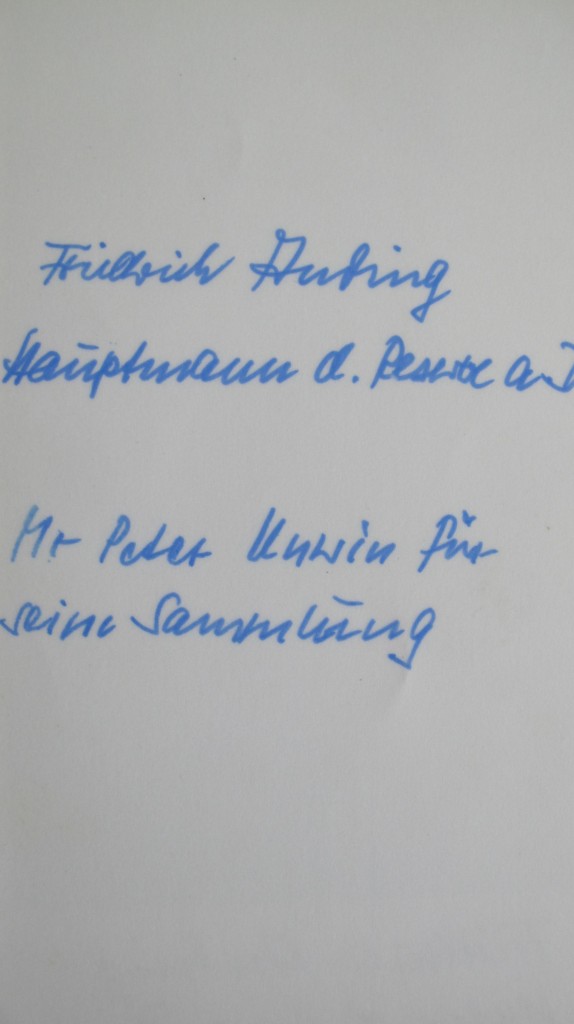 Friedrich Anding
Hauptmann d. Reserve a.D
Mr Peter Unwin für
seine Sammlung